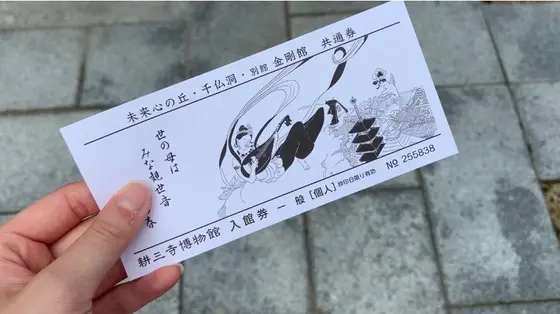 未来心の丘・千仏洞・別館 金剛館 共通券
世の母は
みな観世音
春
耕三寺博物館 入館券 一般 [個人] 捺印日限り有効
№ 255838